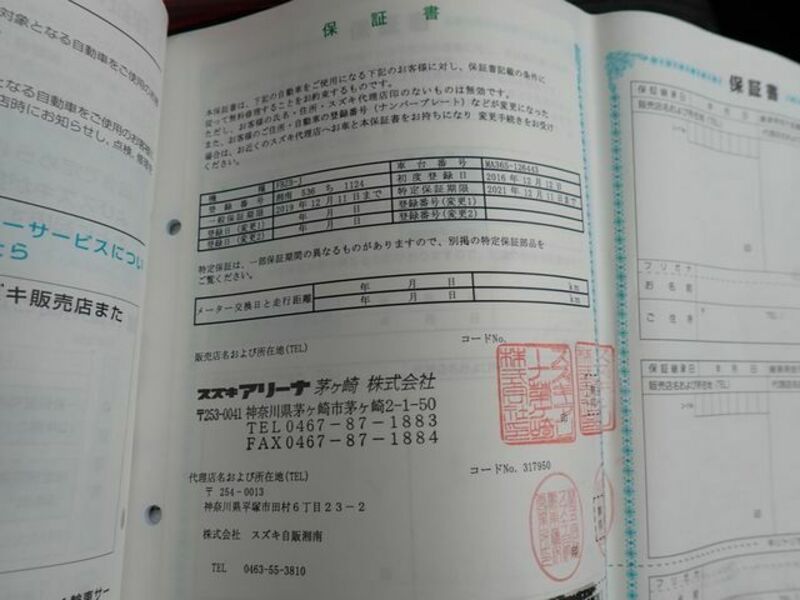 対象となる自動車をご使用の
なる自動車をご使用の
店時にお知らせし、点検、
ーサービスについ
たら
ズキ販売店また
保証書
本保証書は、下記の自動車をご使用になる下記のお客様に対し、保証書記載の条件に
従って無料修理することをお約束するものです。
ただし、お客様の氏名・住所・スズキ代理店印のないものは無効です。
また、お客様のご住所・自動車の登録番号(ナンバープレート)などが変更になった
場合は、お近くのスズキ代理店へお車と本保証書をお持ちになり 変更手続きをお受け
ください。
機種 車台番号 MA36S-126443
登録番号 湘南 536 ち 1124 初度登録日 2016 年 12 月 12 日
一般保証期限 2019 年 12 月 11 日まで 特定保証期限 2021 年 12 月 11 日まで
登録日(変更1) 年 月 日 登録番号(変更1)
登録日(変更2) 年 月 日 登録番号(変更2)
特定保証は、一部保証期間の異なるものがありますので、別掲の特定保証部品を
ご覧ください。
メーター交換日と走行距離 年 月 日 km
年 月 日 km
販売店名および所在地(TEL) コードNo.
スズキアリーナ 茅ヶ崎 株式会社
〒253-0041 神奈川県茅ヶ崎市茅ヶ崎2-1-50
TEL0467-87-1883
FAX0467-87-1884
代理店名および所在地(TEL) コードNo. 317950
〒 254-0013
神奈川県平塚市田村6丁目23-2
株式会社 スズキ自販湘南
TEL 0463-55-3810
保証書
保証継承日 年 月 日
販売店名および所在地(TEL)
フリガナ
お名前
ご住所 〒
保証継承日 年 月 日
販売店名および所在地(TEL)